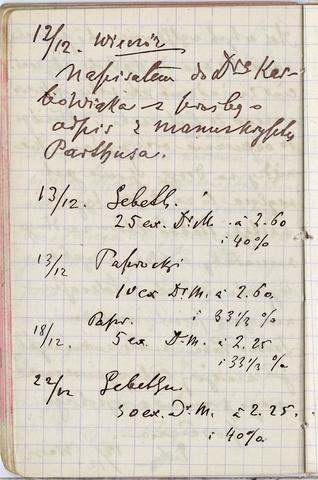 12/12. Wieczór
Napisałem do Dra Kar-
bowiaka z prośbą o
odpis z manuskryptu
Parthusa.
13/12. Gebeth.
25 ex. Dr. M. à 2.60
i 40%
13/12 Paprocki
10 ex Dr M. à 2.60.
i 33 1/3 %
Papr.
18/12. 5 ex. D. M. à 2.25
i 33 1/3 %
22/12 Gebethn.
30 ex. Dr. M. à 2.25.
i 40%